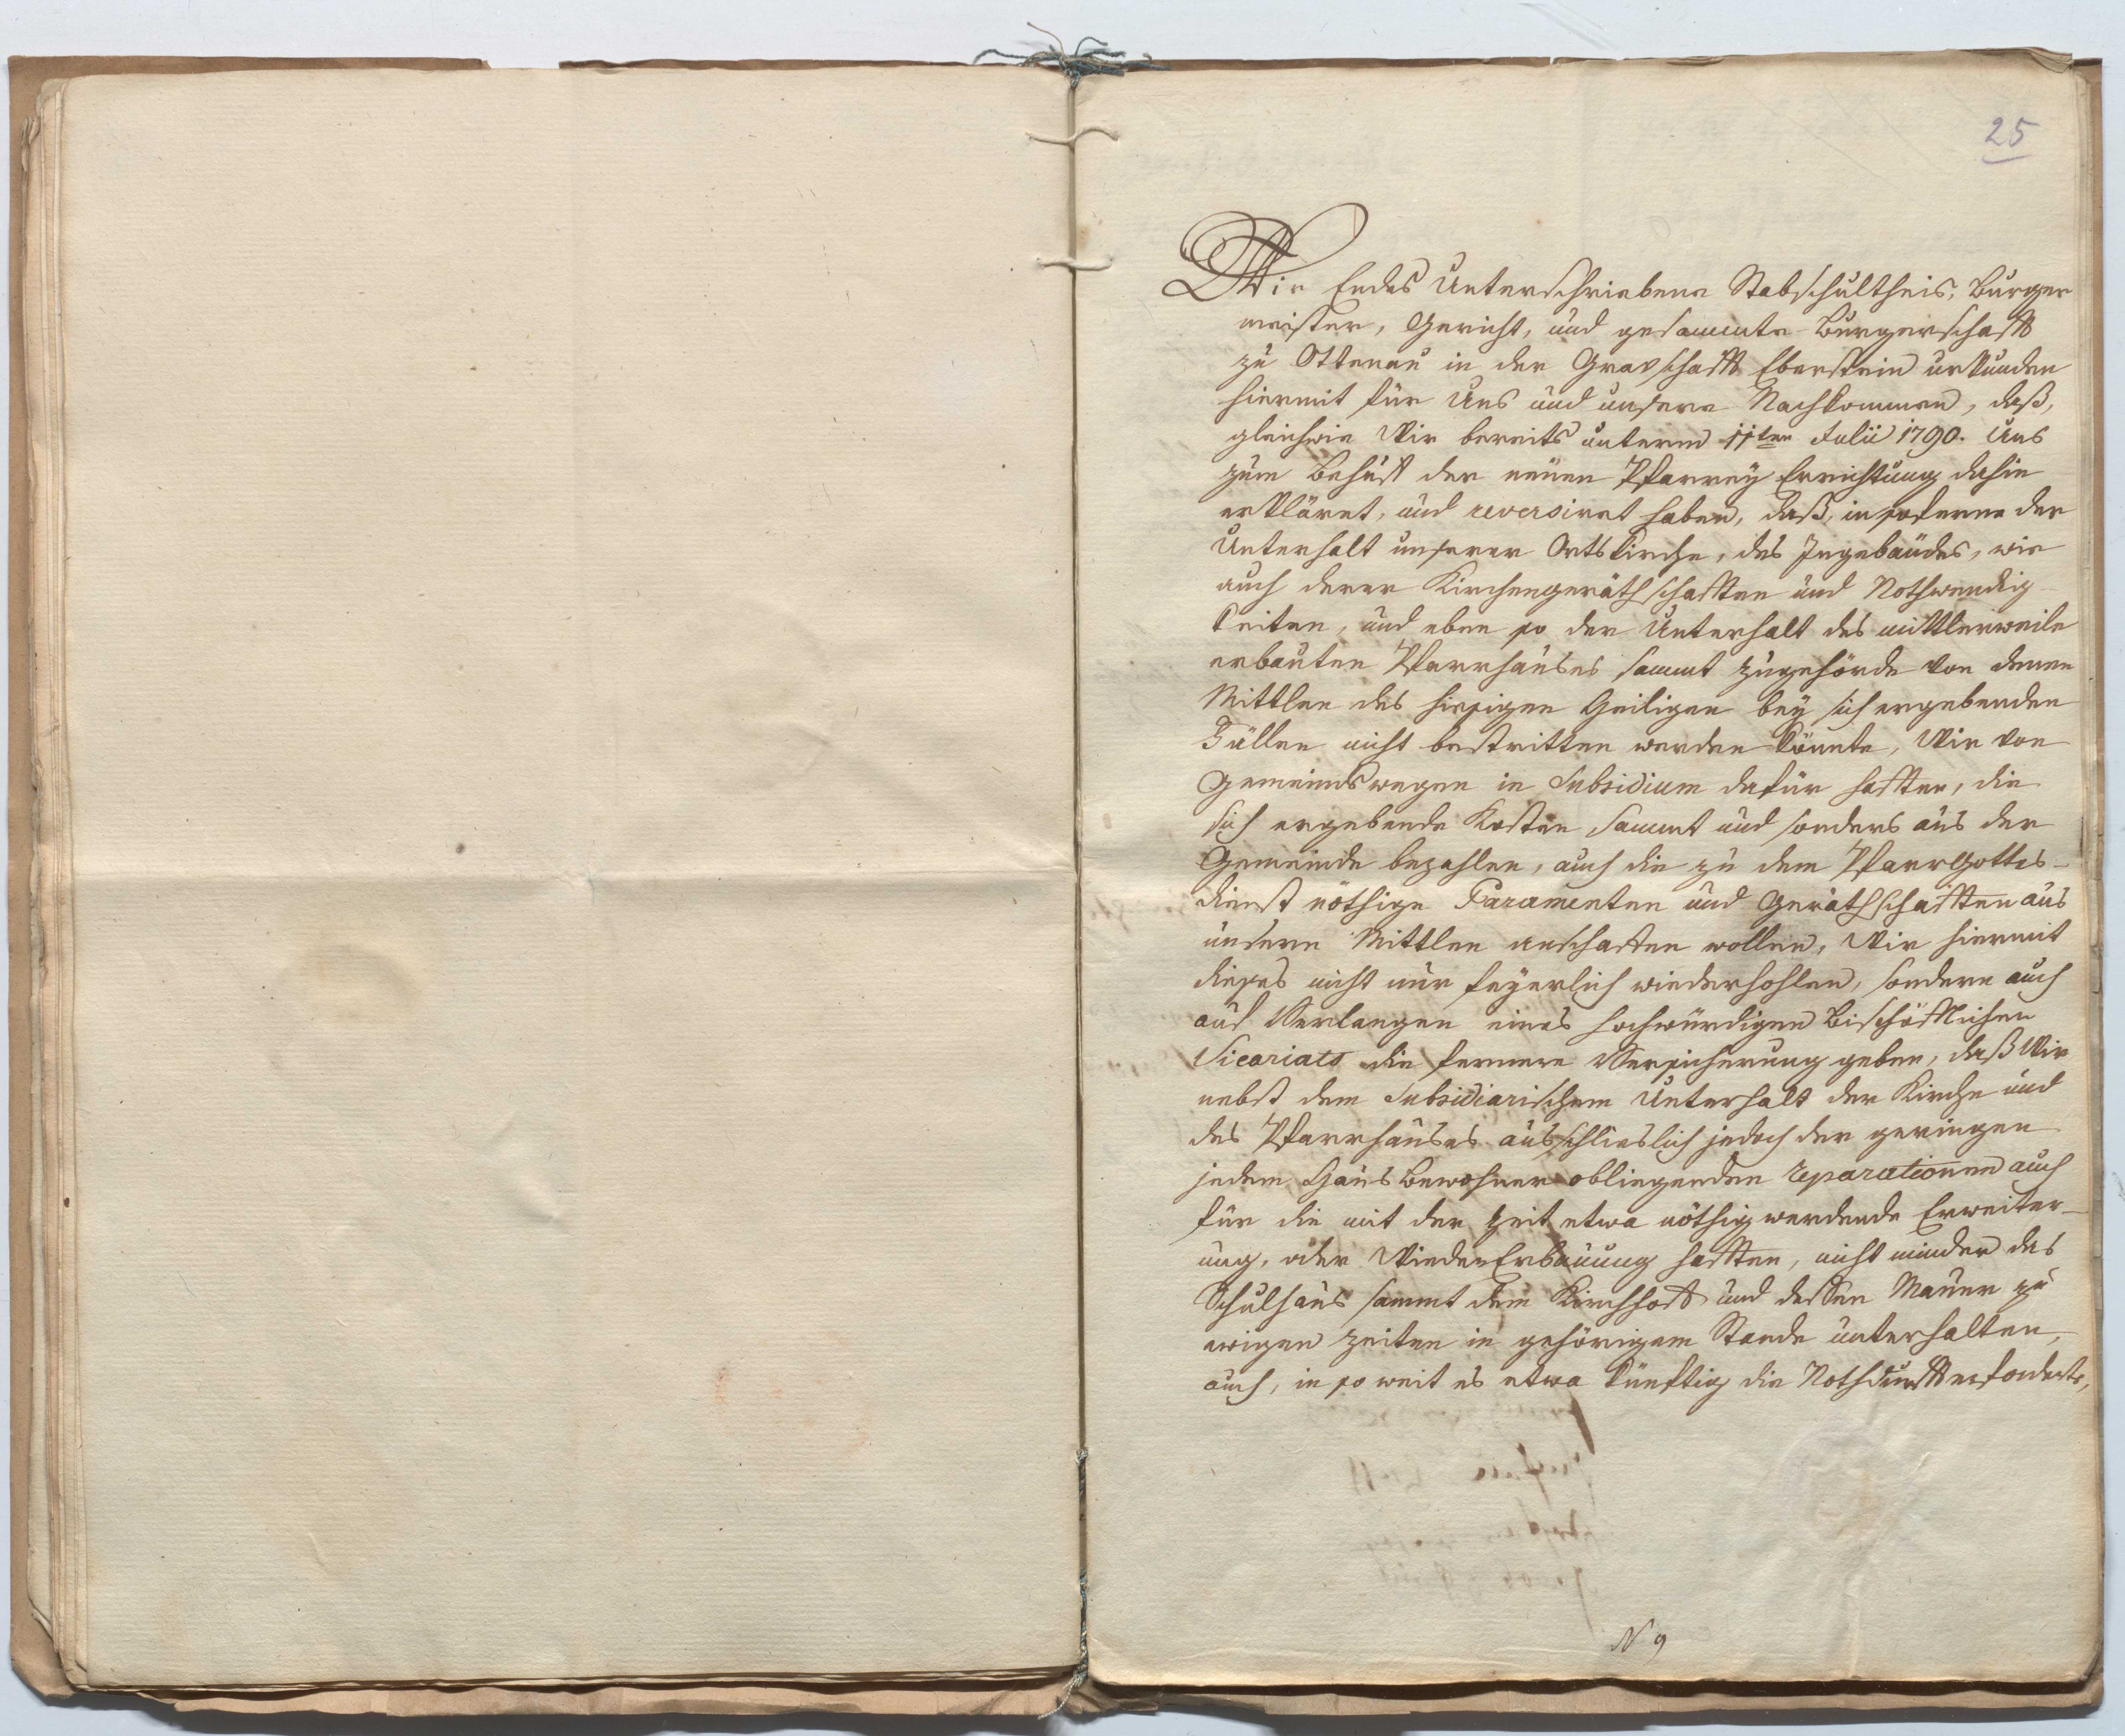 25
Wir Endes Unterschriebene Stabschultheis, Burger
meister, Gericht, und gesammte Burgerschafft
zu Ottenau in der Gravschafft Eberstein urkunden
hiermit für Uns und unsere Nachkommen, daß,
gleichwie Wir bereits unterm 11ten Julii 1790. Uns
zum Behuff der neuen Pfarrey Errichtung dahin
erkläret, und reversiret haben, daß, in soferne der
Unterhalt unserer Ortskirche, des Ingebäudes, wie
auch derer Kirchengeräthschafften und Nothwendig-
keiten, und eben so der Unterhalt des mittlerweile
erbauten Pfarrhauses sammt Zugehörde von denen
Mittlen des hiesigen Heiligen bey sich ergebenden
Fällen nicht bestritten werden könnte, Wir von
Gemeindswegen in Subsidium dafür hafften, die
sich ergebende Kosten sammt und sonders aus der
Gemeinde bezahlen, auch die zu dem PfarrGottes-
dienst nöthige Paramenten und Geräthschafften aus
unsern Mittlen anschaffen wollen, Wir hiermit
dieses nicht nur feyerlich wiederhohlen, sondern auch
auf Verlangen eines hochwürdigen Bischöfflichen
Vicariats die fernere Versicherung geben, daß Wir
nebst dem Subsidiarischem Unterhalt der Kirche und
des Pfarrhauses ausschlieslich jedoch der geringen
jedem Haus Bewohner obliegenden reparationen auch
für die mit der Zeit etwa nöthig werdende Erweiter-
ung, oder WiederErbauung hafften, nicht minder das
Schulhaus sammt dem Kirchhoff und dessen Mauer zu
ewigen Zeiten in gehörigem Stande unterhalten,
auch, in so weit es etwa künftig die Nothdurfft erforderte,
N 9